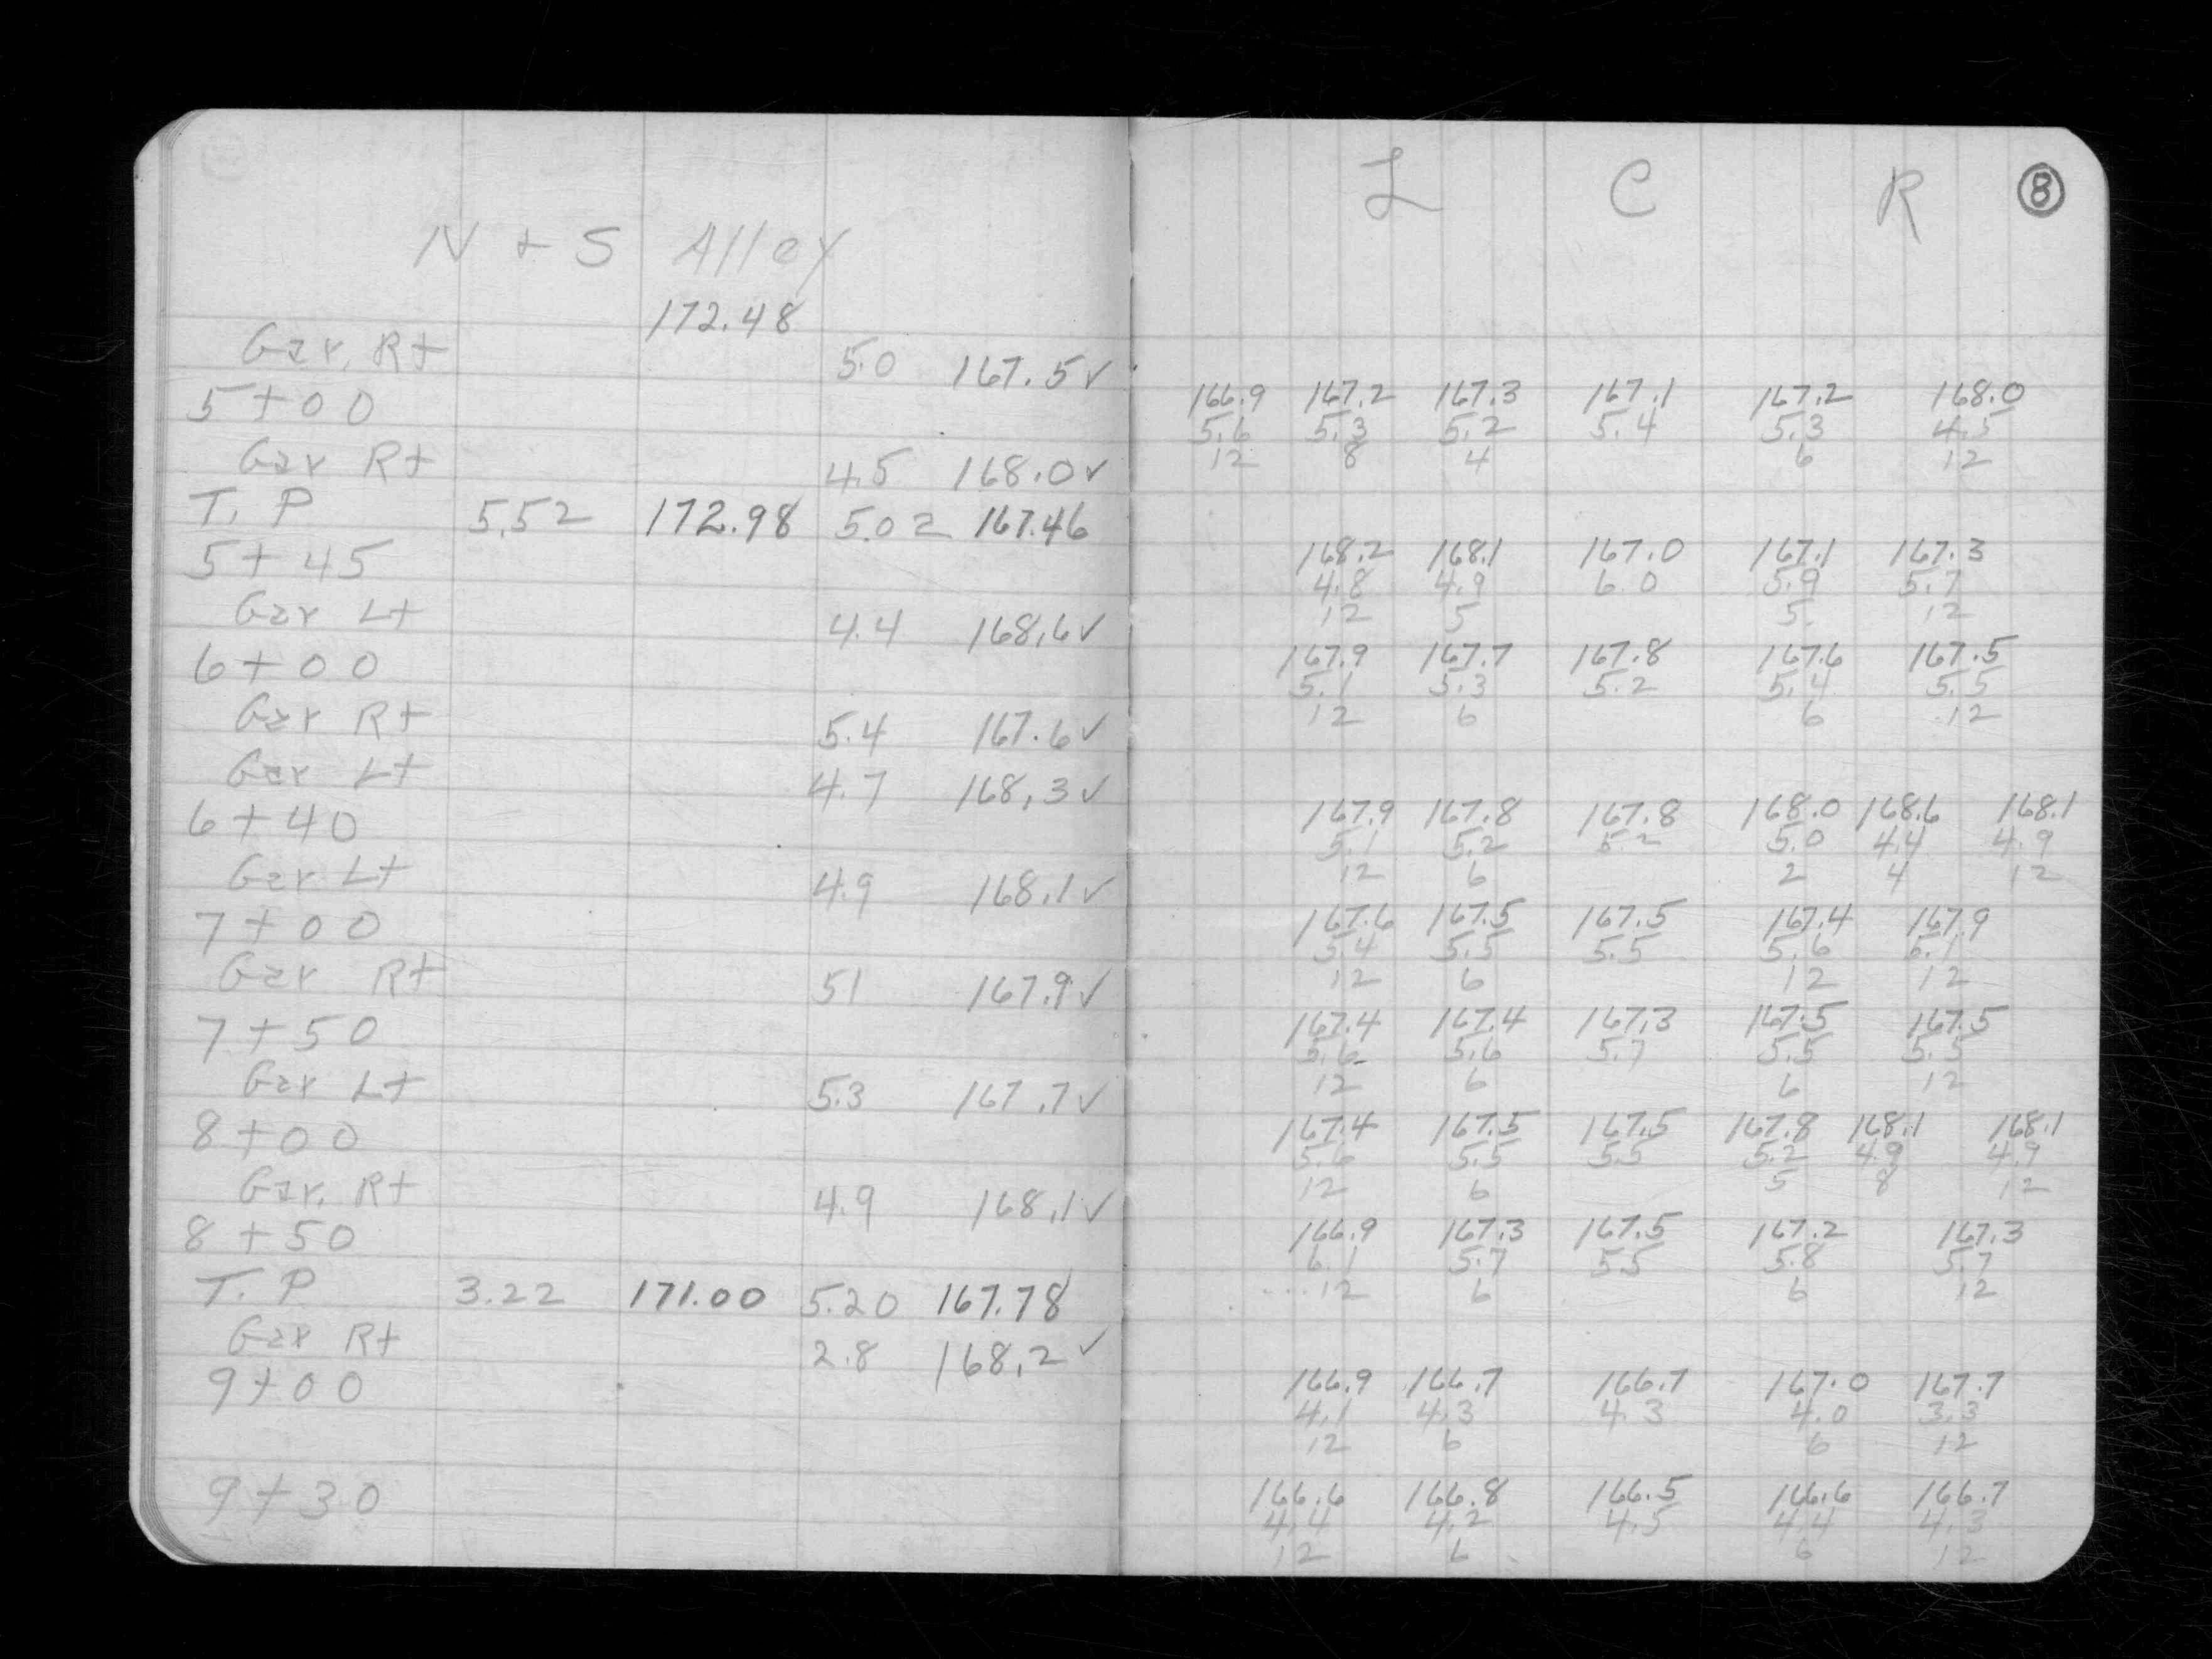 N + S Alley
172.48
Gar. Rt 5.0 167.5✓
5+00
Gar Rt 4.5 168.0✓
T. P 5.52 172.98 5.02 167.46
5+45
Gar Lt 4.4 168.6✓
6+00
Gar Rt 5.4 167.6✓
Gar Lt 4.7 168.3✓
6+40
Gar Lt 4.9 168.1✓
7+00
Gar Rt 51 167.9✓
7+50
Gar Lt 5.3 167.7✓
8+00
Gar. Rt 4.9 168.1✓
8+50
T. P 3.22 171.00 5.20 167.78
Gar Rt 2.8 168.2✓
9+00
9+30
L C R 8
166.9 167.2 167.3 167.1 167.2 168.0
5.6 5.3 5.2 5.4 5.3 4.5
12 8 4 6 12
168.2 168.1 167.0 167.1 167.3
4.8 4.9 6.0 5.9 5.7
12 5 5 12
167.9 167.7 167.8 167.6 167.5
5.1 5.3 5.2 5.4 5.5
12 6 6 12
167.9 167.8 167.8 168.0 168.6 168.1
5.1 5.2 5.2 5.0 4.4 4.9
12 6 2 4 12
167.6 167.5 167.5 167.4 167.9
5.4 5.5 5.5 5.6 5.1
12 6 12 12
167.4 167.4 167.3 167.5 167.5
5.6 5.6 5.7 5.5 5.5
12 6 6 12
167.4 167.5 167.5 167.8 168.1 168.1
5.6 5.5 5.5 5.2 4.9 4.9
12 6 5 8 12
166.9 167.3 167.5 167.2 167.3
6.1 5.7 5.5 5.8 5.7
12 6 6 12
166.9 166.7 166.7 167.0 167.7
4.1 4.3 4.3 4.0 3.3
12 6 6 12
166.6 166.8 166.5 166.6 166.7
4.4 4.2 4.5 4.4 4.3
12 6 6 12